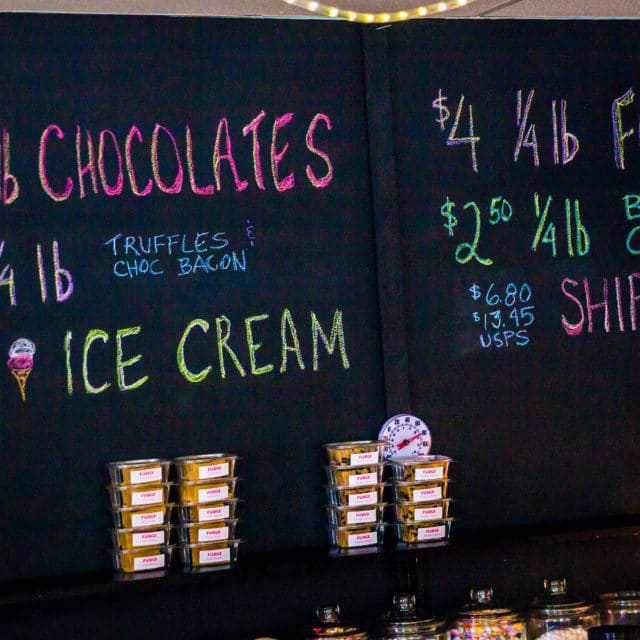 lb CHOCOLATES
/4 lb TRUFFLES &
CHOC BACON
ICE CREAM
$4 1/4 lb F
$2.50 1/4 lb
$6.80
$13.45
USPS
SHIP
FUDGE
FUDGE
FUDGE
FUDGE
FUDGE
FUDGE
FUDGE
FUDGE
FUDGE
FUDGE
FUDGE
FUDGE
FUDGE
FUDGE
FUDGE
FUDGE
FUDGE
FUDGE